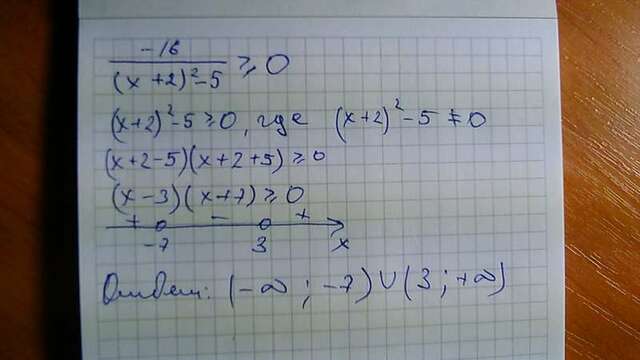 -16/((x+2)²-5) ≥ 0
(x+2)²-5 ≥ 0, где (x+2)²-5 ≠ 0
(x+2-5)(x+2+5) ≥ 0
(x-3)(x+7) ≥ 0
+ - +
-7 3 x
Ответ: (-∞; -7)∪(3; +∞)